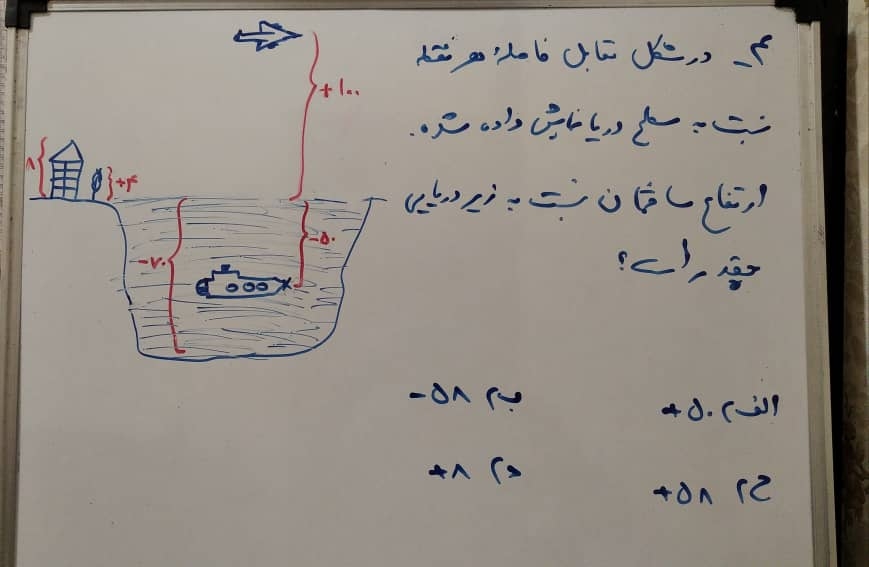 ۳ـ در شکل مقابل فاصلهٔ هر نقطه
نسبت به سطح دریا نمایش داده شده.
ارتفاع ساختمان نسبت به زیردریایی
چقدر است؟
+۱۰۰
۸
+۴
-۵۰
-۷۰
الف) +۵۰
ب) -۵۸
ج) +۵۸
د) +۸